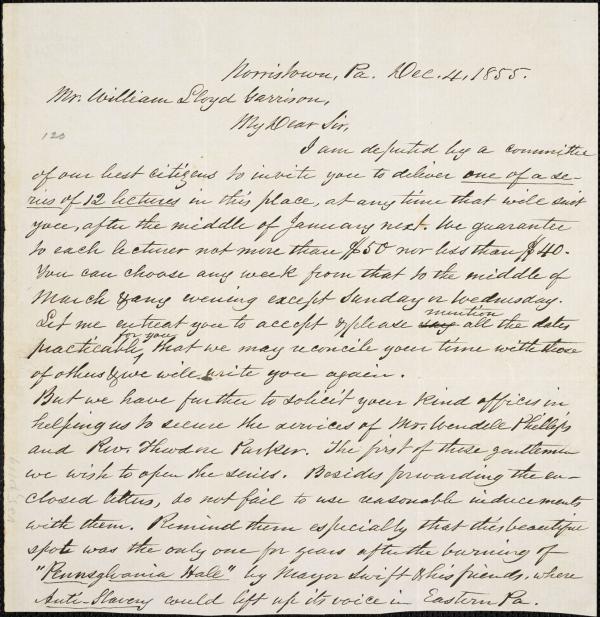 Norristown, Pa. Dec. 4, 1855.
Mr. William Lloyd Garrison,
120
My Dear Sir,
I am deputed by a committee
of our best citizens to invite you to deliver one of a se-
ries of 12 lectures in this place, at any time that will suit
you, after the middle of January next. We guarantee
to each lecturer not more than $50 nor less than $40.
You can choose any week from that to the middle of
March & any evening except Sunday or Wednesday.
mention
Let me entreat you to accept & please say all the dates
for you
practicable, that we may reconcile your time with those
of others & we will write you again.
But we have further to solicit your kind offices in
helping us to secure the services of Mr. Wendell Phillips
and Rev. Theodore Parker. The first of these gentlemen
we wish to open the series. Besides forwarding the en-
closed letters, do not fail to use reasonable inducements
with them. Remind them especially that this beautiful
spot was the only one for years after the burning of
"Pennsylvania Hall" by Mayor Swift & his friends, where
Anti-Slavery could lift up its voice in Eastern Pa.